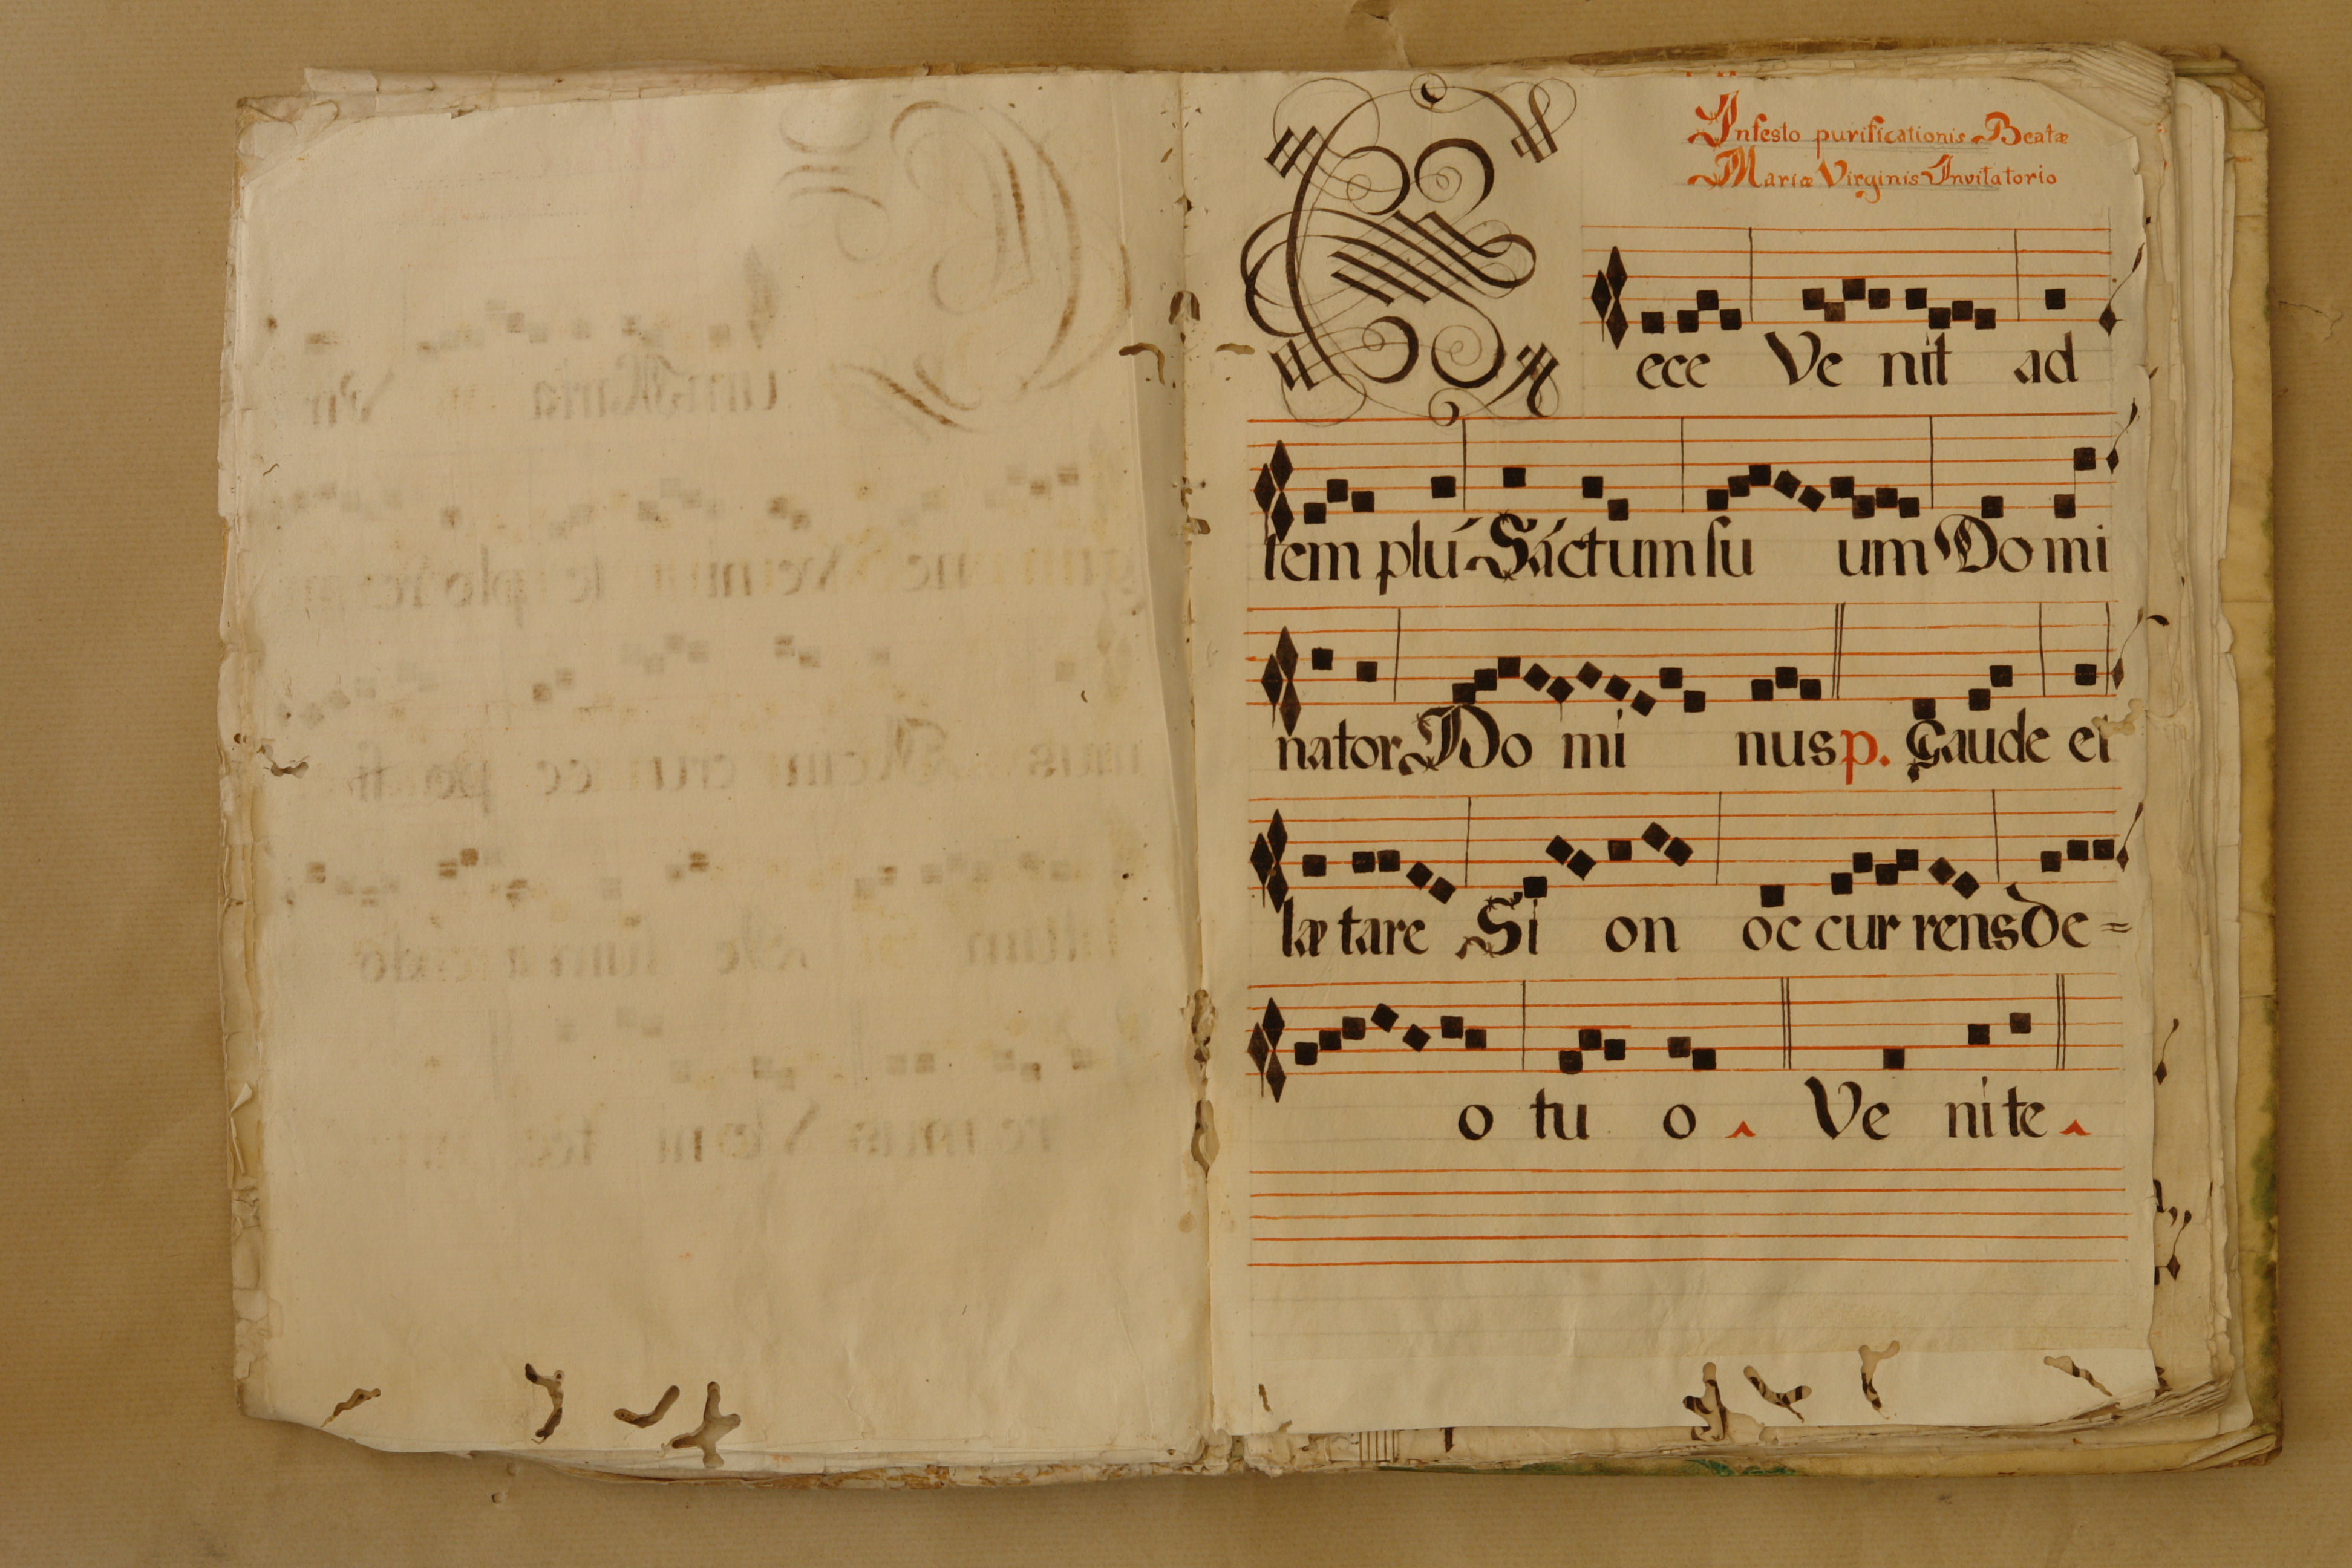 Infesto purificationis Beatæ
Mariæ Virginis Invitatorio
Ecce Ve nit ad
tem plú Sáctum su um Do mi
nator Do mi nus p. Gaude et
læ tare Si on oc cur rens de=
o tu o Ve ni te